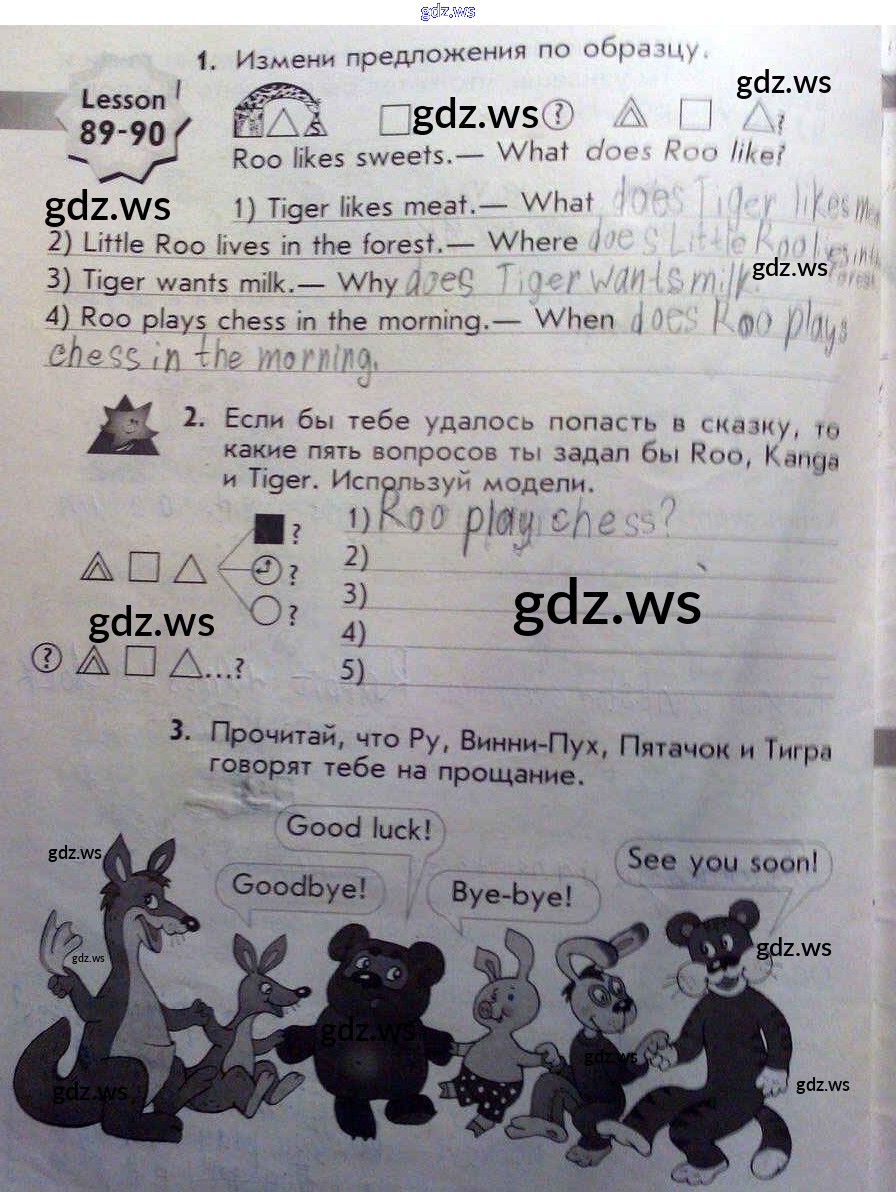 gdz.ws
1. Измени предложения по образцу.
gdz.ws
Lesson
89-90
gdz.ws ? ?
Roo likes sweets.— What does Roo like?
gdz.ws
1) Tiger likes meat.— What does Tiger likes
2) Little Roo lives in the forest.— Where does Little Roo lives in the forest
gdz.ws
3) Tiger wants milk.— Why does Tiger wants milk.
4) Roo plays chess in the morning.— When does Roo plays
chess in the morning.
2. Если бы тебе удалось попасть в сказку, то
какие пять вопросов ты задал бы Roo, Kanga
и Tiger. Используй модели.
? 1) Roo play chess?
? 2)
? 3)
gdz.ws gdz.ws
4)
? ...? 5)
3. Прочитай, что Ру, Винни-Пух, Пятачок и Тигра
говорят тебе на прощание.
Good luck!
gdz.ws
See you soon!
Goodbye!
Bye-bye!
gdz.ws
gdz.ws
gdz.ws
gdz.ws
gdz.ws
gdz.ws